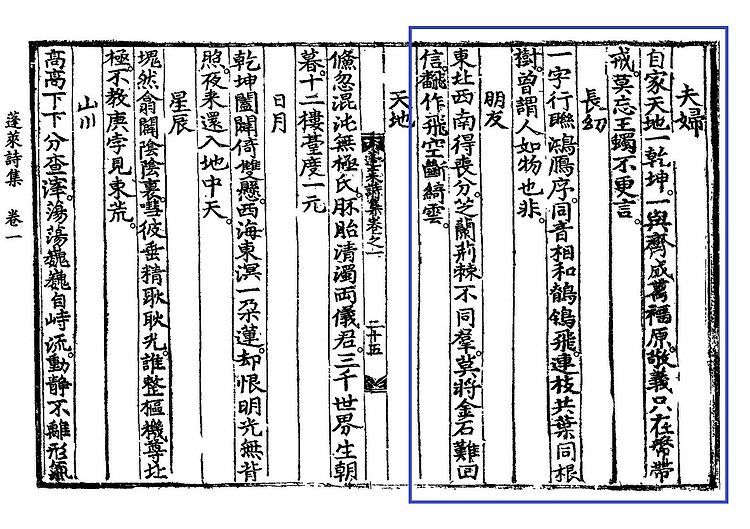 夫婦
自家天地一乾坤。一與齊成萬福原。敬義只在幣帶
戒。莫忘王蠋不更言。
長幼
一字行聯鴻鴈序。同音相和鶺鴒飛。連枝共葉同根
樹。曾謂人如物也非。
朋友
東北西南得喪分。芝蘭荊棘不同羣。莫將金石難回
信。飜作飛空斷綺雲。
蓬萊詩集卷之一
二十五
天地
儵忽混沌無極氏。胚胎清濁両儀君。三千世界生朝
暮。十二樓臺度一元
日月
乾坤闔闢倚雙懸。西海東溟一朶蓮。却恨明光無背
照。夜來還入地中天。
星辰
塊然翕闢陰陰裏。彗彼垂精耿耿光。誰整樞機尊北
極。不教庚孛見東荒。
山川
高高下下分查滓。蕩蕩巍巍自峙流。動靜不離形氣
蓬萊詩集 卷一